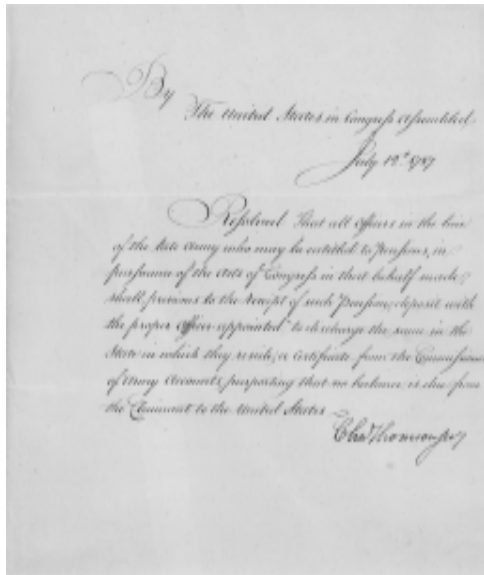 By
The United States in Congress Assembled
July 12th 1787
Resolved That all Officers in the line
of the late Army who may be entitled to Pensions, in
pursuance of the Acts of Congress in that behalf made;
shall previous to the receipt of such Pension, deposit with
the proper Officer appointed to discharge the same in the
State in which they reside, a Certificate from the Commissioner
of Army Accounts, purporting that no balance is due from
the Claimant to the United States
Chas Thomson Secy